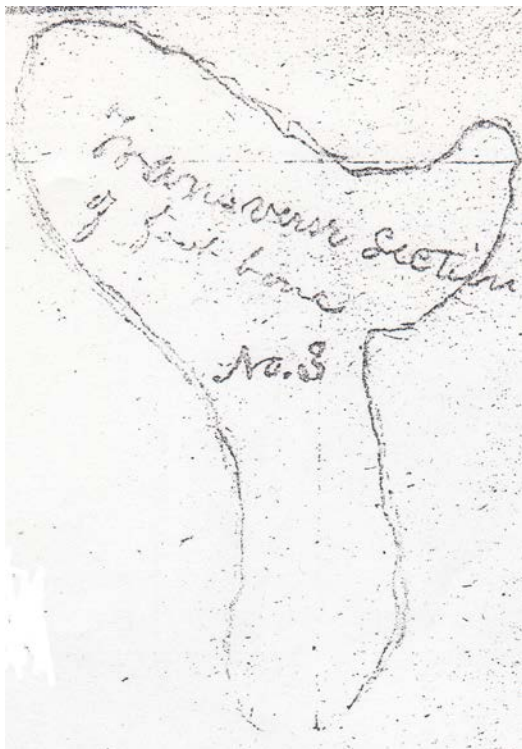 "Transverse Section
of foot bone
No. 3